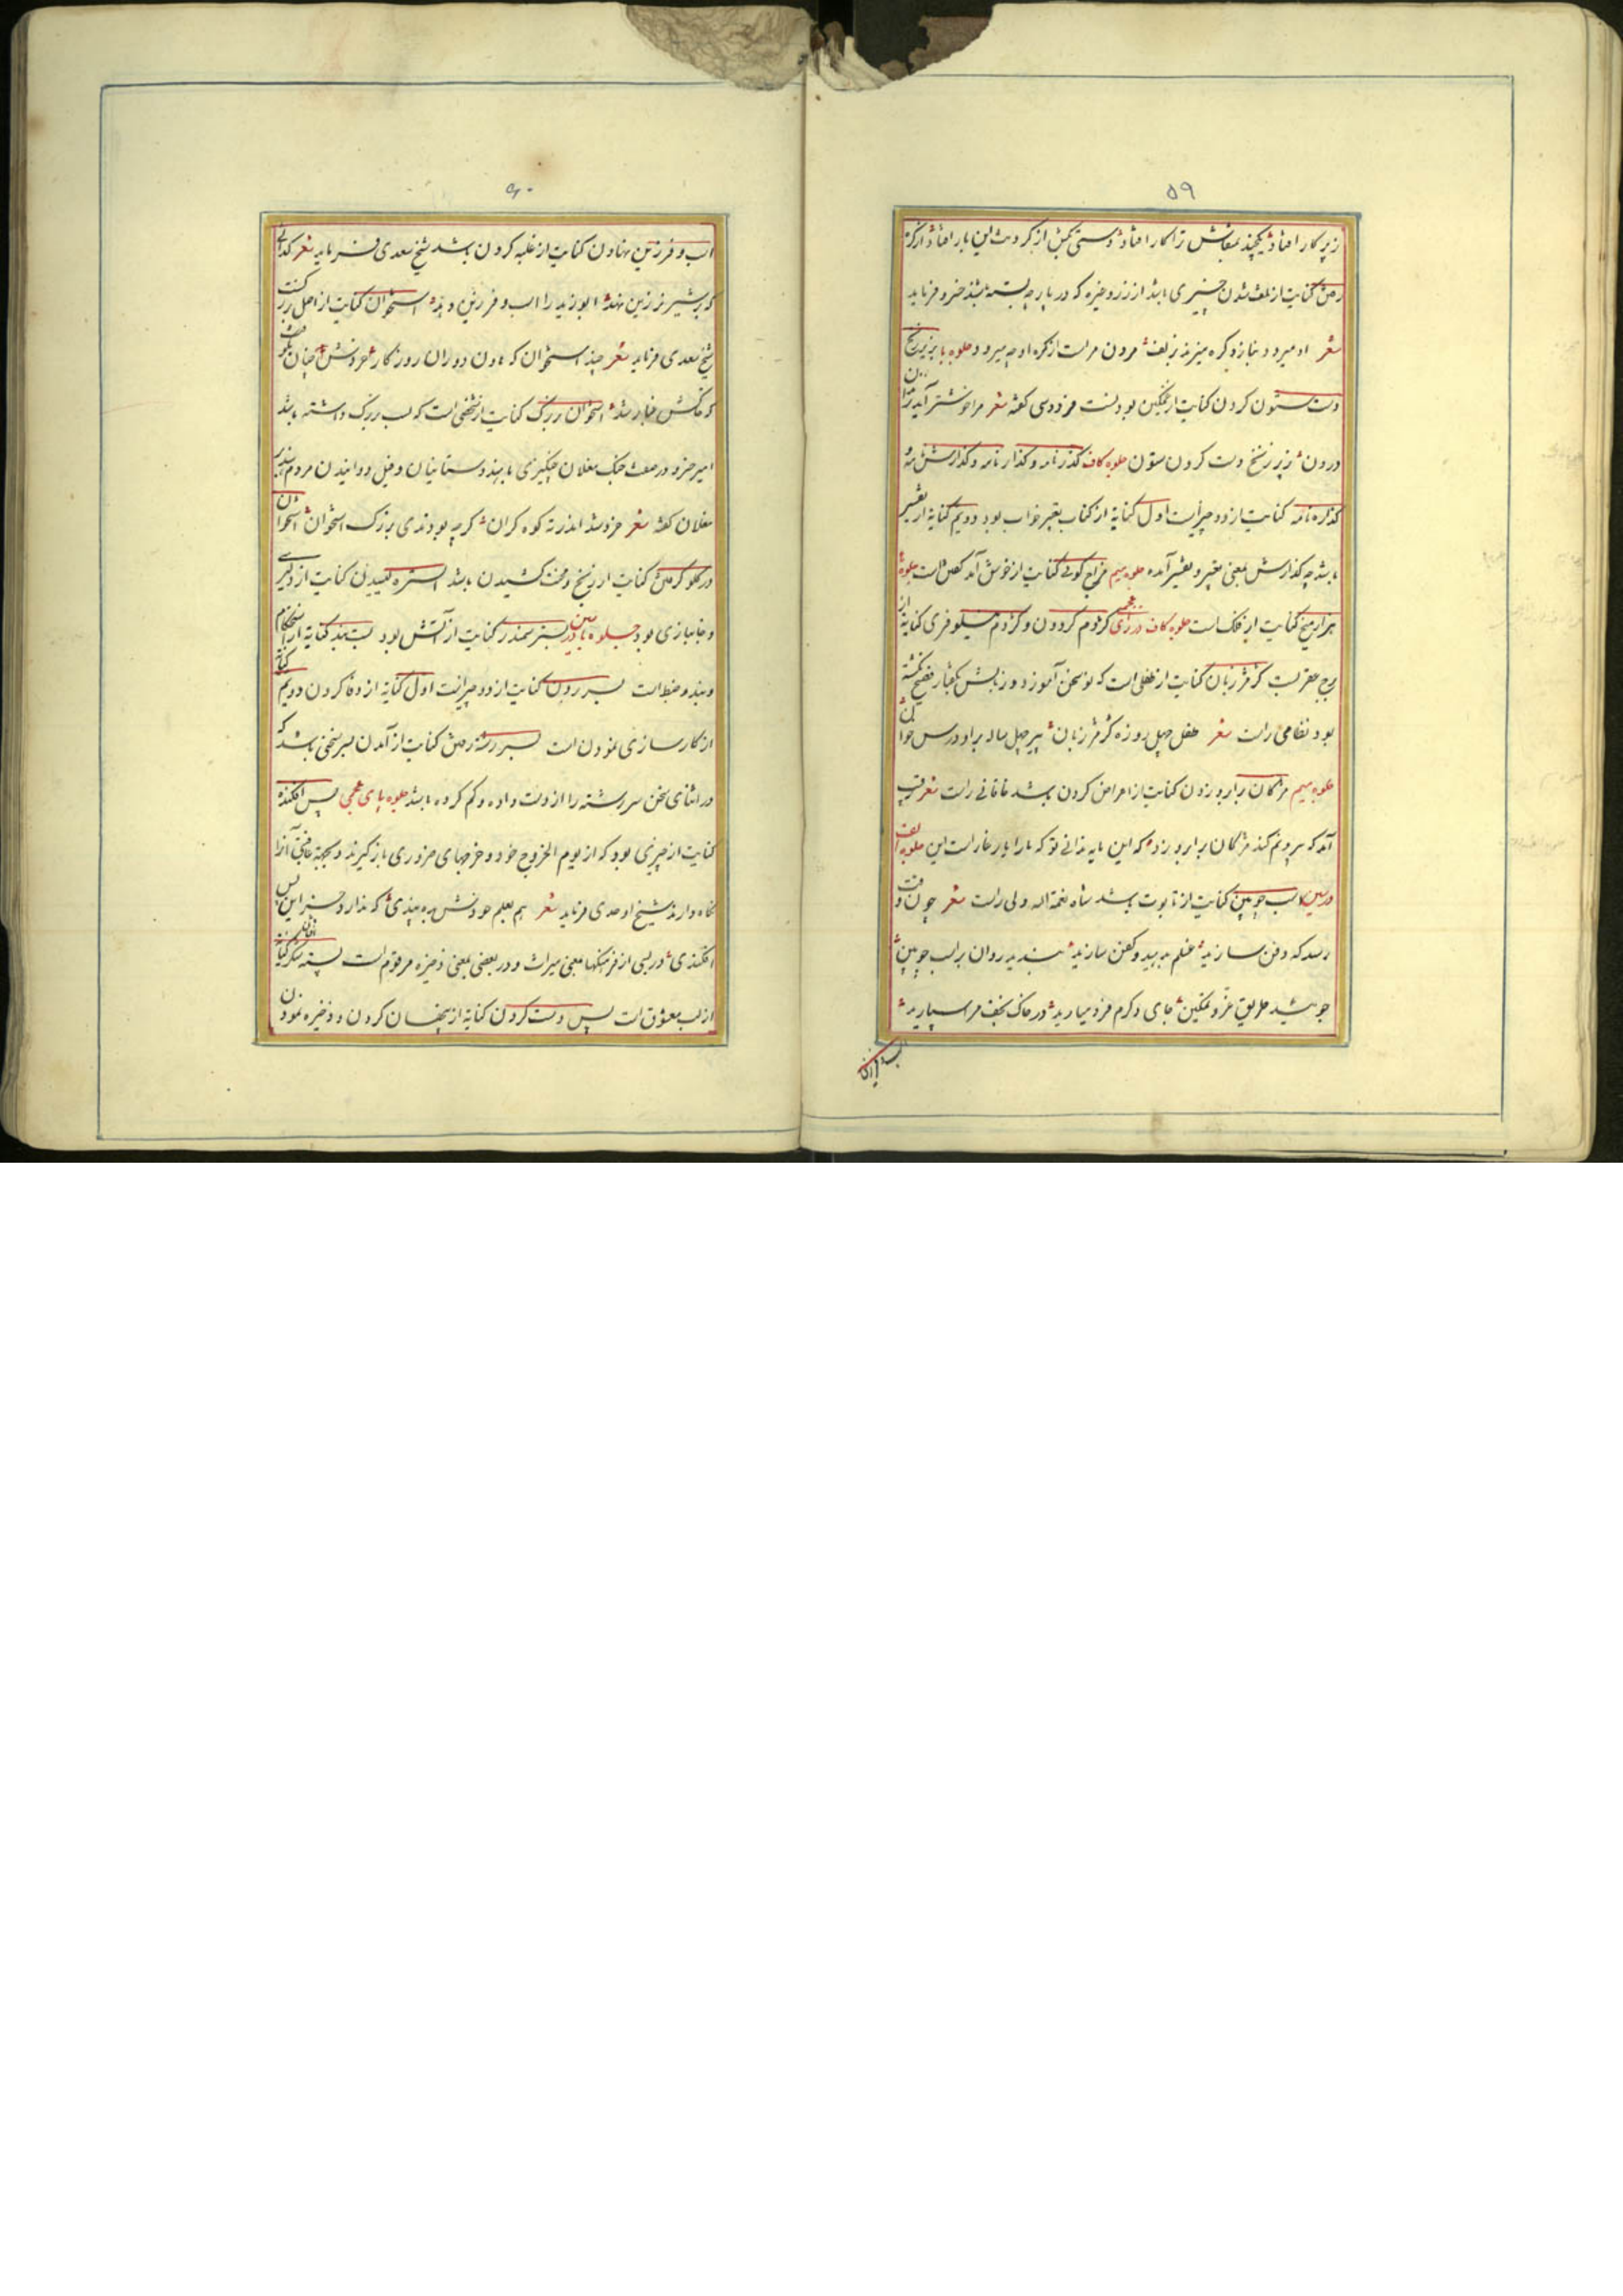 ۵۹
زیر کار افتاد یکچند بمقاش ترا کار افتاد دستی بکش از کر دست این بار افتاد از کره
رفتن کنایت از تلف شدن چیزی باشد از زر و غیره که در پارچه بسته باشند خسرو فرماید
شعر او میرود بناز و گره میزند بزلف مردن مراست از گره او چه میرود جلوه با بزیر زنخ
دست ستون کردن کنایت از غمگین بودنست فردوسی گفته شعر مرا خوشتر آید
درون زیر زنخ دست کردن ستون جلوه کاف گذرنامه و گذارنامه و گذارش نامه
گذاره نامه کنایت از دو چیز است اول کنایه از کتاب تعبیر خواب بود دویم کنایه از تفسیر
باشد چه گذارش بمعنی تعبیر و تفسیر آمده جلوه میم مزاج گوئی کنایت از خوش آمد گفتن است جلوه
هزار میخ کنایت از فلک است جلوه کاف در زای عجمی کژدم گردون و کژدم نیلوفری کنایه از
برج عقرب کژمژ زبان کنایت از طفلی است که نو سخن آموزد و زبانش بگفتار فصیح نگشته
بود نظامی راست شعر طفل چهل روزه کژمژ زبان پیر چهل ساله براو درس خوان
جلوه میم مژگان برابرو زدن کنایت از اعراض کردن باشد خاقانی راست شعر
آمد که سردیم کند مژگان برابرو زد که این مایه ندانی تو که مارا یار غار است این جلوه الف
در سین اسب چوبین کنایت از تابوت باشد شاه نعمة اله ولی راست شعر چون وقت
رسد که دفن سازید غسلم بدهید و کفن سازید بندید روان بر اسب چوبین
جوشید طریق عز و تمکین جای و کرم فرو میارید در خاک نجف مرا سپارید
۶۰
اسب و فرزین نهادن کنایت از غلبه کردن باشد شیخ سعدی فرماید شعر گدائی
که بر شیر نر زین نهد ابو زید را اسب و فرزین دهد استخوان کنایت از اصل
شیخ سعدی فرماید شعر چند استخوان که هاون دوران روزگار خردش چنان بکوفت
که خاکش غبار شد استخوان بزرک کنایت از شخصی است که نسب بزرک داشته باشد
امیر خسرو در صفت جنک مغلان چنکیزی با هندوستانیان و فیل دوانیدن مردم هند بر
مغلان گفته شعر خرد شد اندر ته کوه کران کرچه بودندی بزرک استخوان استخوان
در گلو گرفتن کنایت از رنج و محنت کشیدن باشد استره لیسیدن کنایت از دلیری
و جانبازی بود جلوه با در سین بستر سمندر کنایت از آتش بود بست بند کنایه از استحکام
و بند و ضبط است بسر بردن کنایت از دو چیز است اول کنایه از وفا کردن دویم کنایه
از کارسازی نمودن است بسر رشته رفتن کنایت از آمدن بسر سخنی باشد که
در اثنای سخن سررشته را از دست داده و گم کرده باشد جلوه بای عجمی پس افکنده
کنایت از چیزی بود که از یوم الخروج خود و خرجهای ضروری بازگیرند و بجهة عاقبتی آنرا
نگاه دارند شیخ اوحدی فرماید شعر هم بعلم خودش بده پندی که ندارد جز این پس
افکندی در بسی از فرهنگها بمعنی میراث و در بعضی بمعنی ذخیره مرقوم است پسته شکر کنایه
از لب معشوق است پس دست کردن کنایه از پنهان کردن و ذخیره نمودن